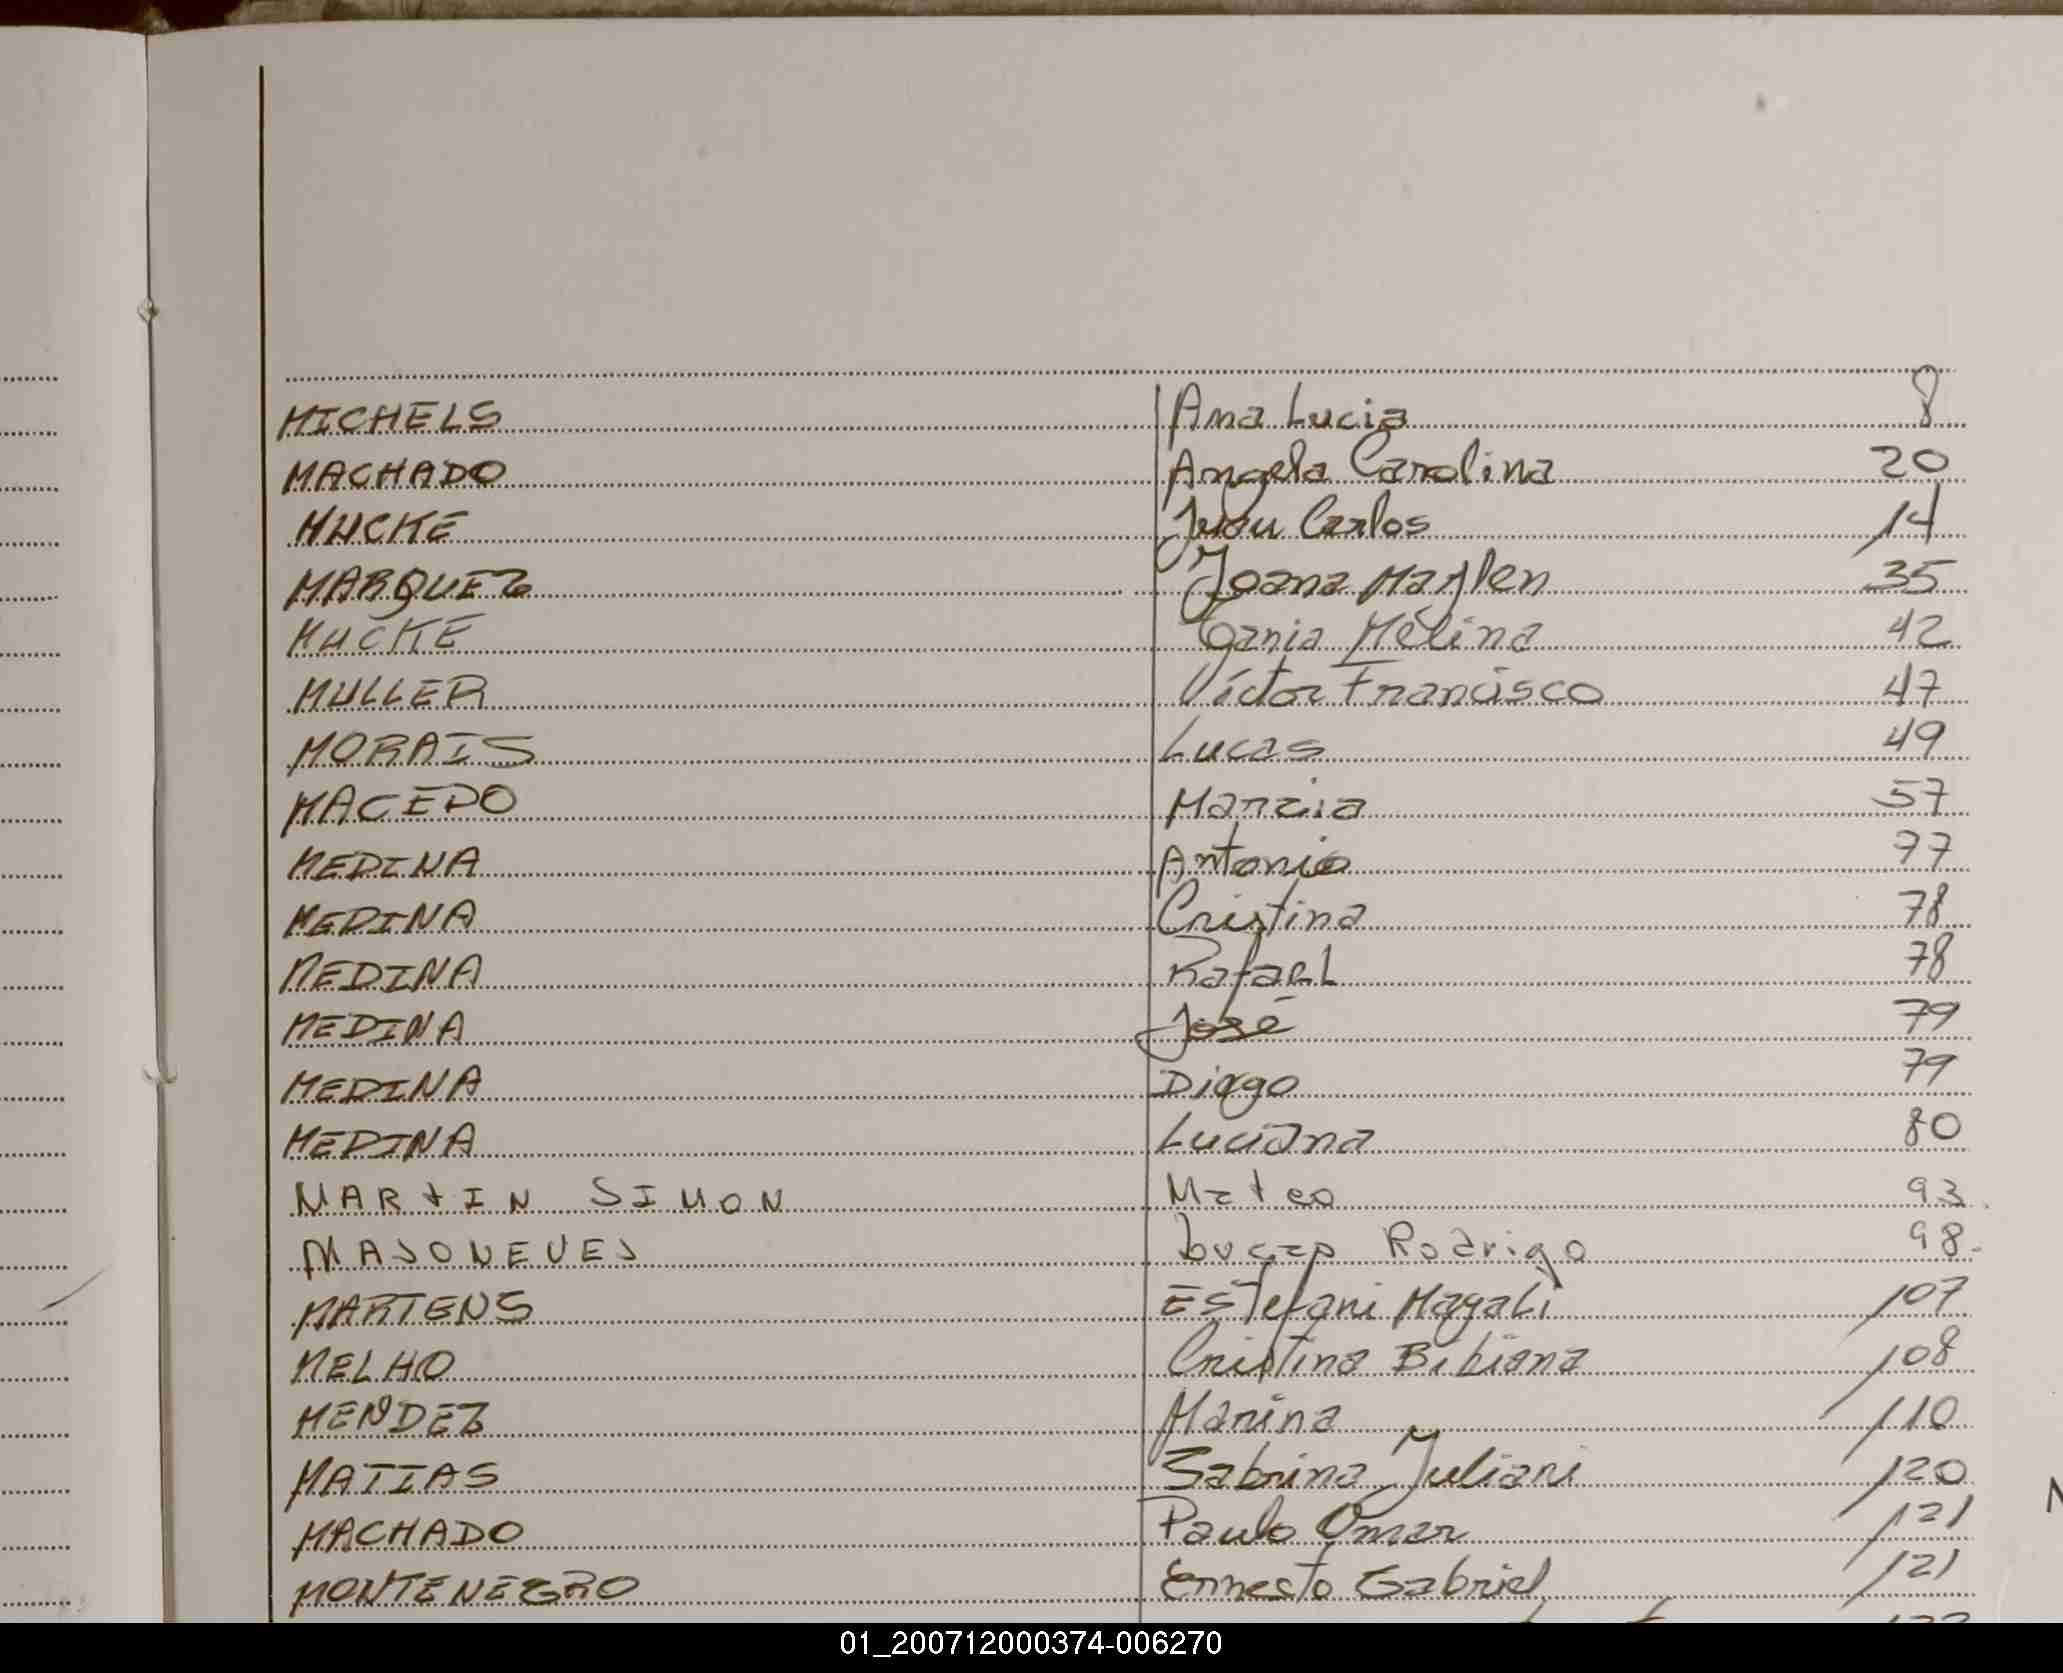 MICHELS Ana Lucia 8
MACHADO Angela Carolina 20
MUCKE Juan Carlos 14
MARQUEZ Joana Marylen 35
MUCKE Tania Mélina 42
MULLER Víctor Francisco 47
MORAIS Lucas 49
MACEDO Marcia 57
MEDINA Antonio 77
MEDINA Cristina 78
MEDINA Rafael 78
MEDINA José 79
MEDINA Diego 79
MEDINA Luciana 80
MARTIN SIMON Mateo 93
MASONEVES Rodrigo 98
MARTENS Estefani Magali 107
MELHO Cristina Bibiana 108
MENDEZ Marina 110
MATIAS Sabrina Juliani 120
MACHADO Paulo Omar 121
MONTENEGRO Ernesto Gabriel 121
01_200712000374-006270